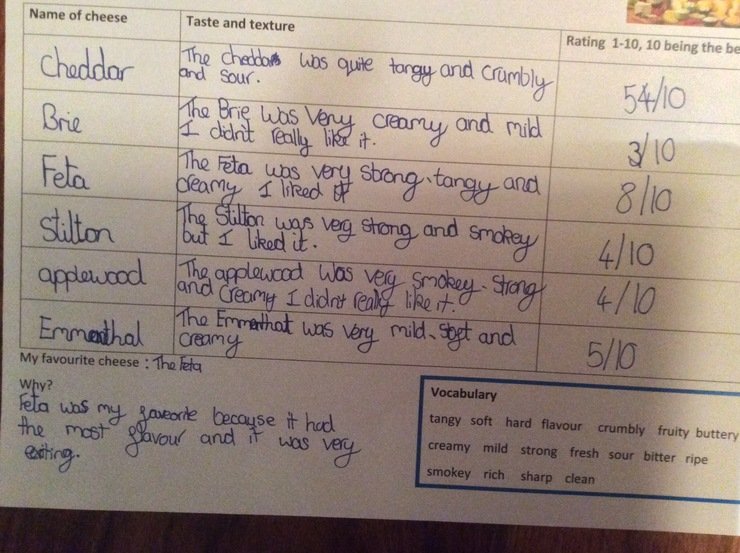 Name of cheese
Taste and texture
Rating 1-10, 10 being the be
Cheddar
The cheddar was quite tangy and crumbly
and sour.
54/10
Brie
The Brie was very creamy and mild
I didn't really like it.
3/10
Feta
The Feta was very strong, tangy and
creamy I liked it
8/10
Stilton
The Stilton was very strong and smokey
but I liked it.
4/10
applewood
The applewood was very smokey, strong
and creamy I didnt really like it.
4/10
Emmenthal
The Emmenthal was very mild, soft and
creamy
5/10
My favourite cheese : The feta
Why?
feta was my gaveorite because it had
the most flavour and it was very
exiting.
Vocabulary
tangy soft hard flavour crumbly fruity buttery
creamy mild strong fresh sour bitter ripe
smokey rich sharp clean